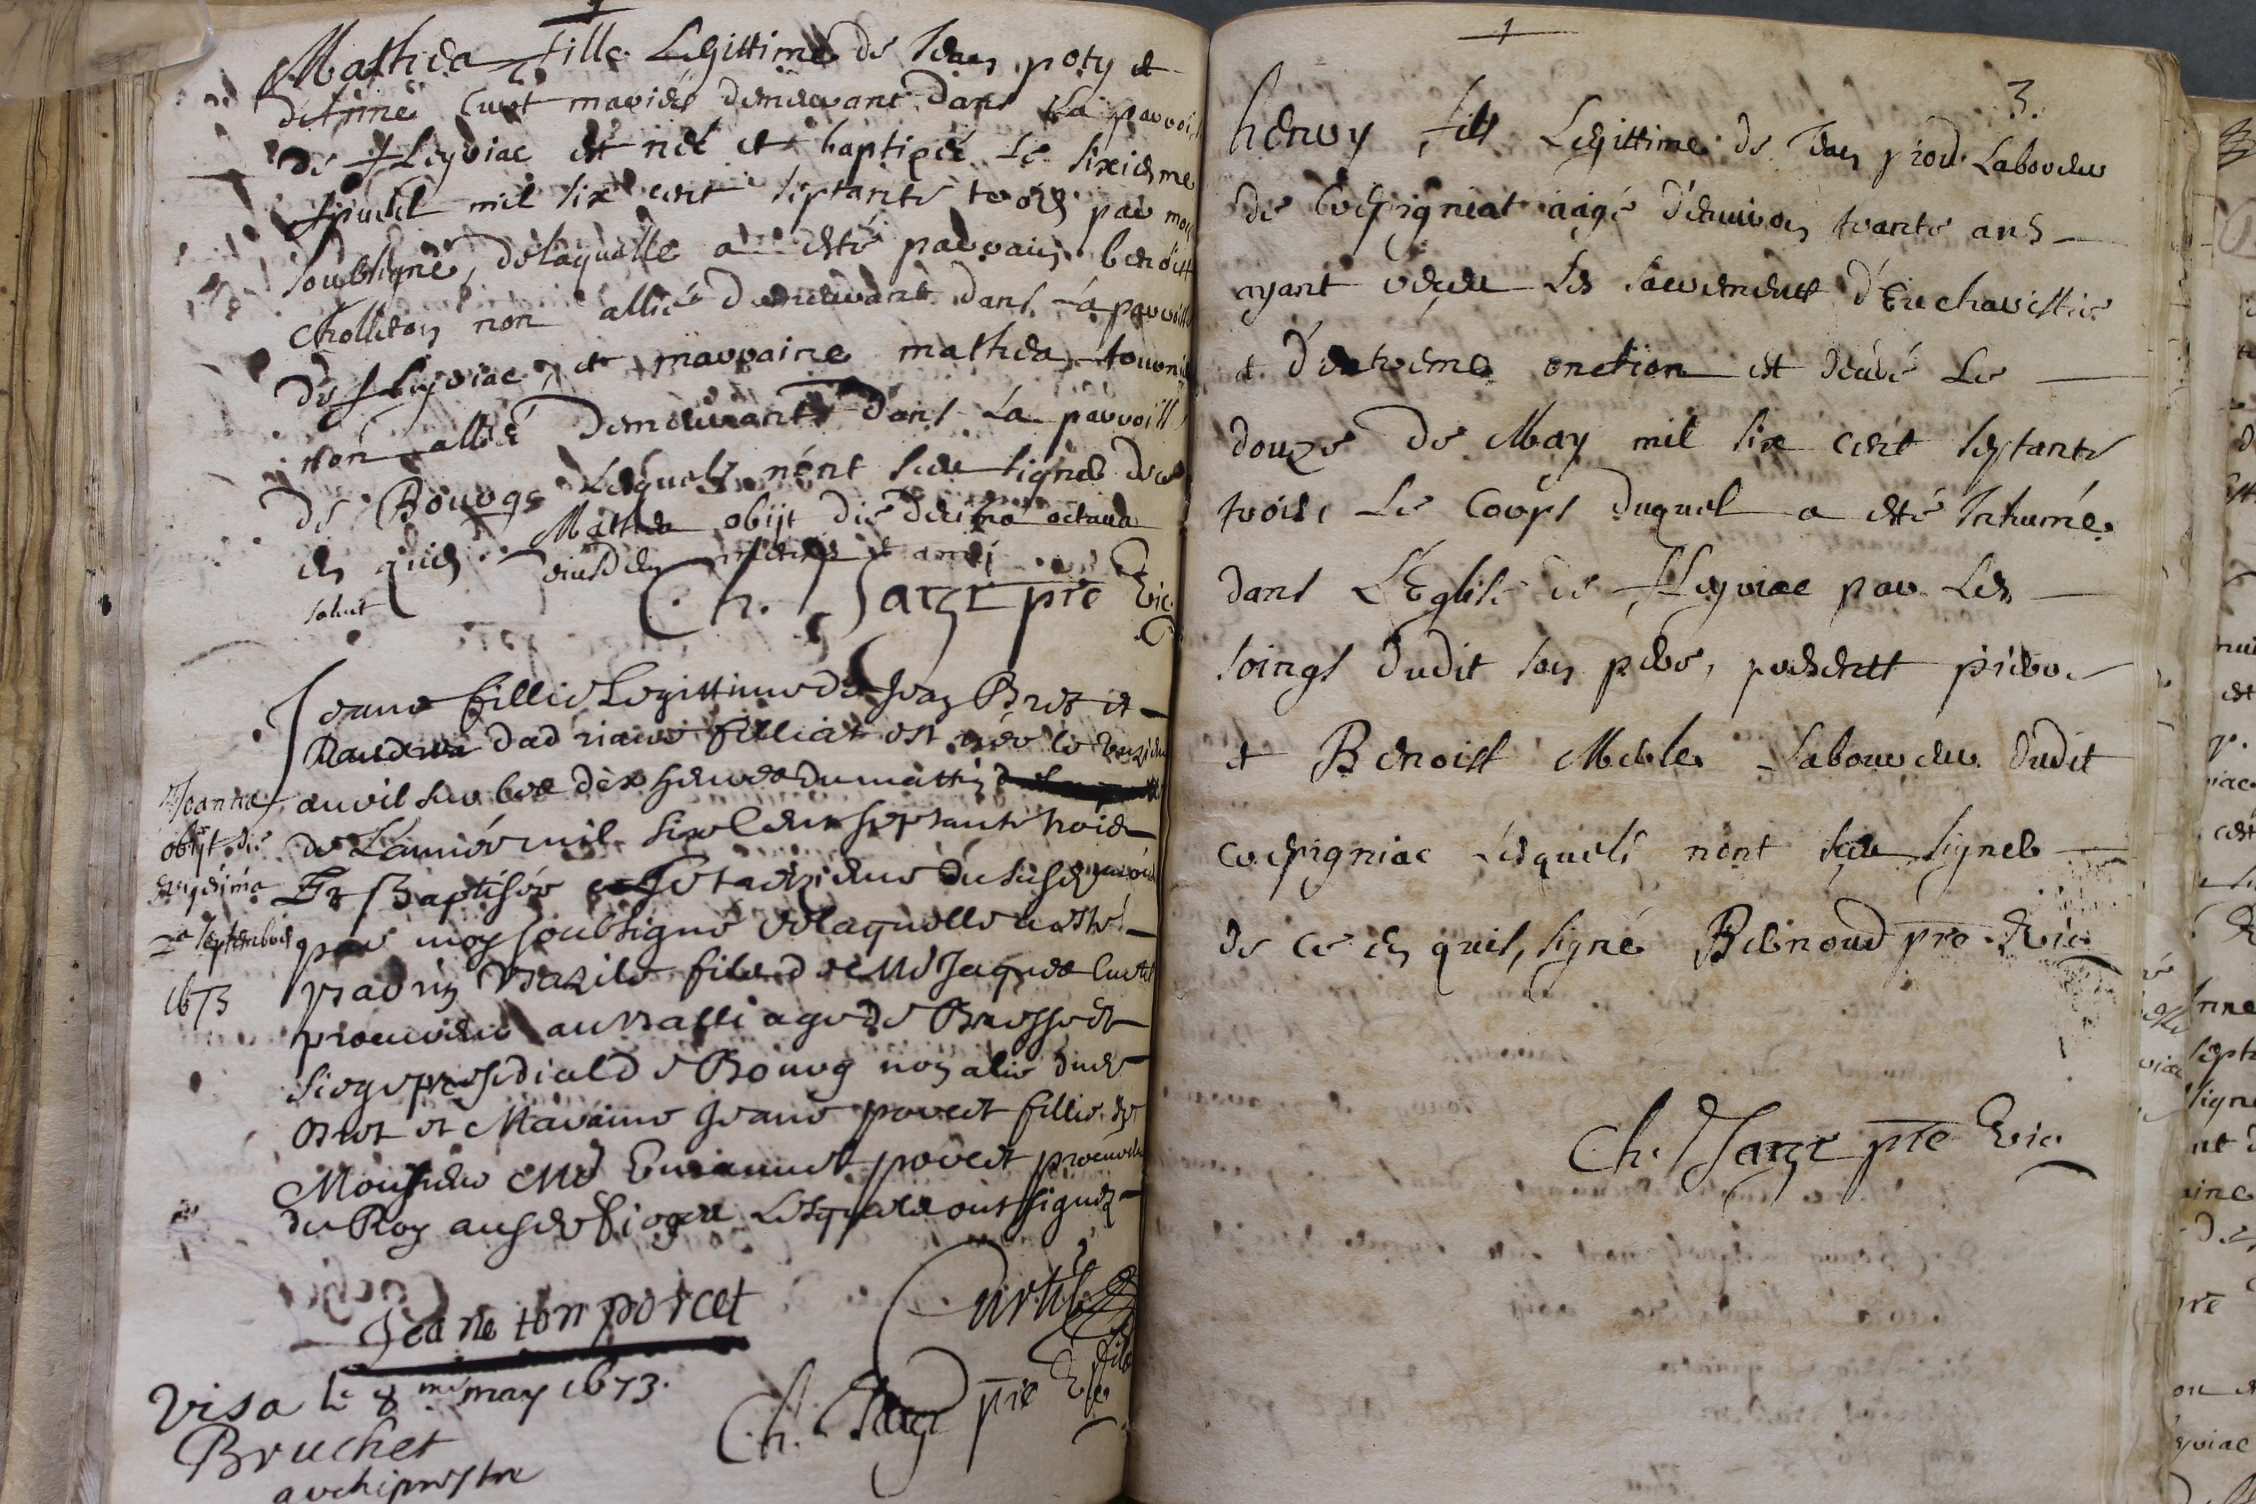 Mathea fille Legittime de Jean poty et
de Anne Curt mariés demeurant dans La parroiss
de fleyriac est née et baptizée Le sixiesme
Apuril mil six cent septante trois par moy
soubsigné, delaquelle a esté parrain benoist
Cholleton non allié demeurant dans La parroisse
de fleyriac, et marraine mathea
non alliée demeurante dans La parroisse
de Bourgs Lesquels nont sceu signer de ce
en quis Mathea obijt die decima octaua
eiusdem mensis et anni
soluit
Ch. Sarge pre vic.
Jeane fillie Legittime de Jean Bret et
dadriane filliat est née le
auril sur les dix heures du mattin
de Lannée mil six Cens septante trois
Et Baptisée
par moy soubsigné delaquelle a esté
parin Bazile fils de Me Jaques Curtil
procureur au Balliage de Bresse et
siege presidial de Bourg non alié
et Maraine Jeane porcet fillie de
Monsieur Me porcet procureur
du Roy lesquels ont signez
Joanna
obijt die
vigesima
2a septembris
1673
Jeane ton porcet
Curtil
fils
Visa le 8me may 1673.
Bruchet
archiprestre
Ch. Sarge pre vic
3.
henry fils Legittime de Jean Laboureur
de Crespigniat aagé d'enuiron trante ans
ayant receu Les sacrements d'Eucharistie
et d'extreme onction est decedé Le
douze de May mil six cent septante
trois Le Corps duquel a esté Inhumé
dans L'Eglise de fleyriac par Les
soings dudit son pere, presents pierre
et Benoist Merle Laboureur dudit
crespigniac Lesquels nont sceu signer
de ce en quis, signé Bernoud pre vic.
Ch. Sarge pre vic.